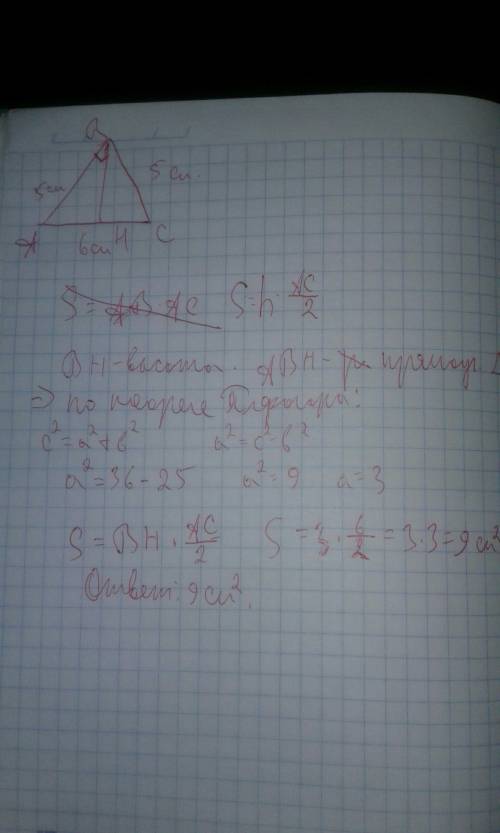 B
5см 5см.
A 6см H C
S=AB·AC S=h·AC/2
BH-высота. ABH- прямоуг
=> по теореме Пифагора:
c²=a²+b² a²=c²-b²
a²=36-25 a²=9 a=3
S=BH·AC/2 S=3·6/2=3·3=9см²
Ответ: 9см².